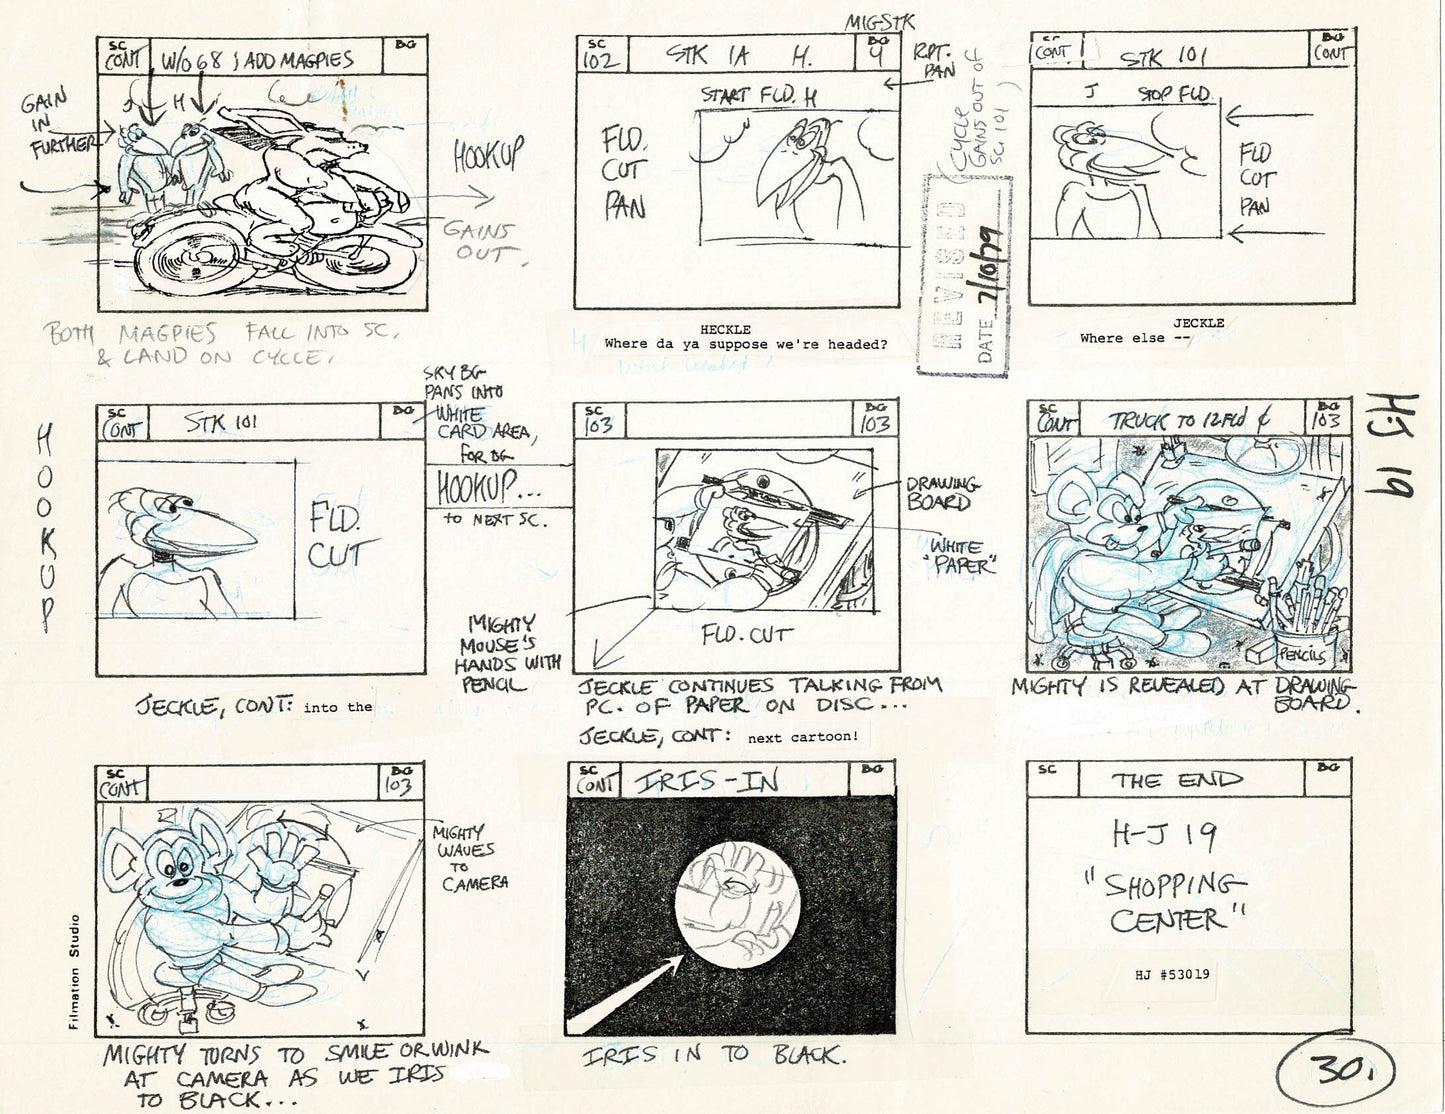 SC
CONT
W/O 68 ; ADD MAGPIES
BG
J
H
GAIN
IN
FURTHER
HOOKUP
GAINS
OUT.
BOTH MAGPIES FALL INTO SC.
& LAND ON CYCLE.
MIG-STK
SC
102
STK 1A H.
BG
4
RPT.
PAN
START FLD. H
FLD.
CUT
PAN
HECKLE
Where da ya suppose we're headed?
(CYCLE
GAINS OUT OF
SC. 101)
REVISED
DATE 7/10/79
CONT
STK 101
BG
CONT
J STOP FLD.
FLD
CUT
PAN
JECKLE
Where else --
HOOKUP
SC
CONT
STK 101
BG
FLD.
CUT
SKY BG
PANS INTO
WHITE
CARD AREA,
FOR BG
HOOKUP...
TO NEXT SC.
JECKLE, CONT: into the
SC
103
BG
103
DRAWING
BOARD
WHITE
"PAPER"
MIGHTY
MOUSE'S
HANDS WITH
PENCIL
FLD. CUT
JECKLE CONTINUES TALKING FROM
PC. OF PAPER ON DISC...
JECKLE, CONT: next cartoon!
SC
CONT
TRUCK TO 12 FLD ¢
BG
103
PENCILS
MIGHTY IS REVEALED AT DRAWING
BOARD.
HJ 19
SC
CONT
BG
103
MIGHTY
WAVES
TO
CAMERA
Filmation Studio
MIGHTY TURNS TO SMILE OR WINK
AT CAMERA AS WE IRIS
TO BLACK...
SC
CONT
IRIS-IN
BG
IRIS IN TO BLACK.
SC
THE END
BG
H-J 19
"SHOPPING
CENTER"
HJ #53019
30.